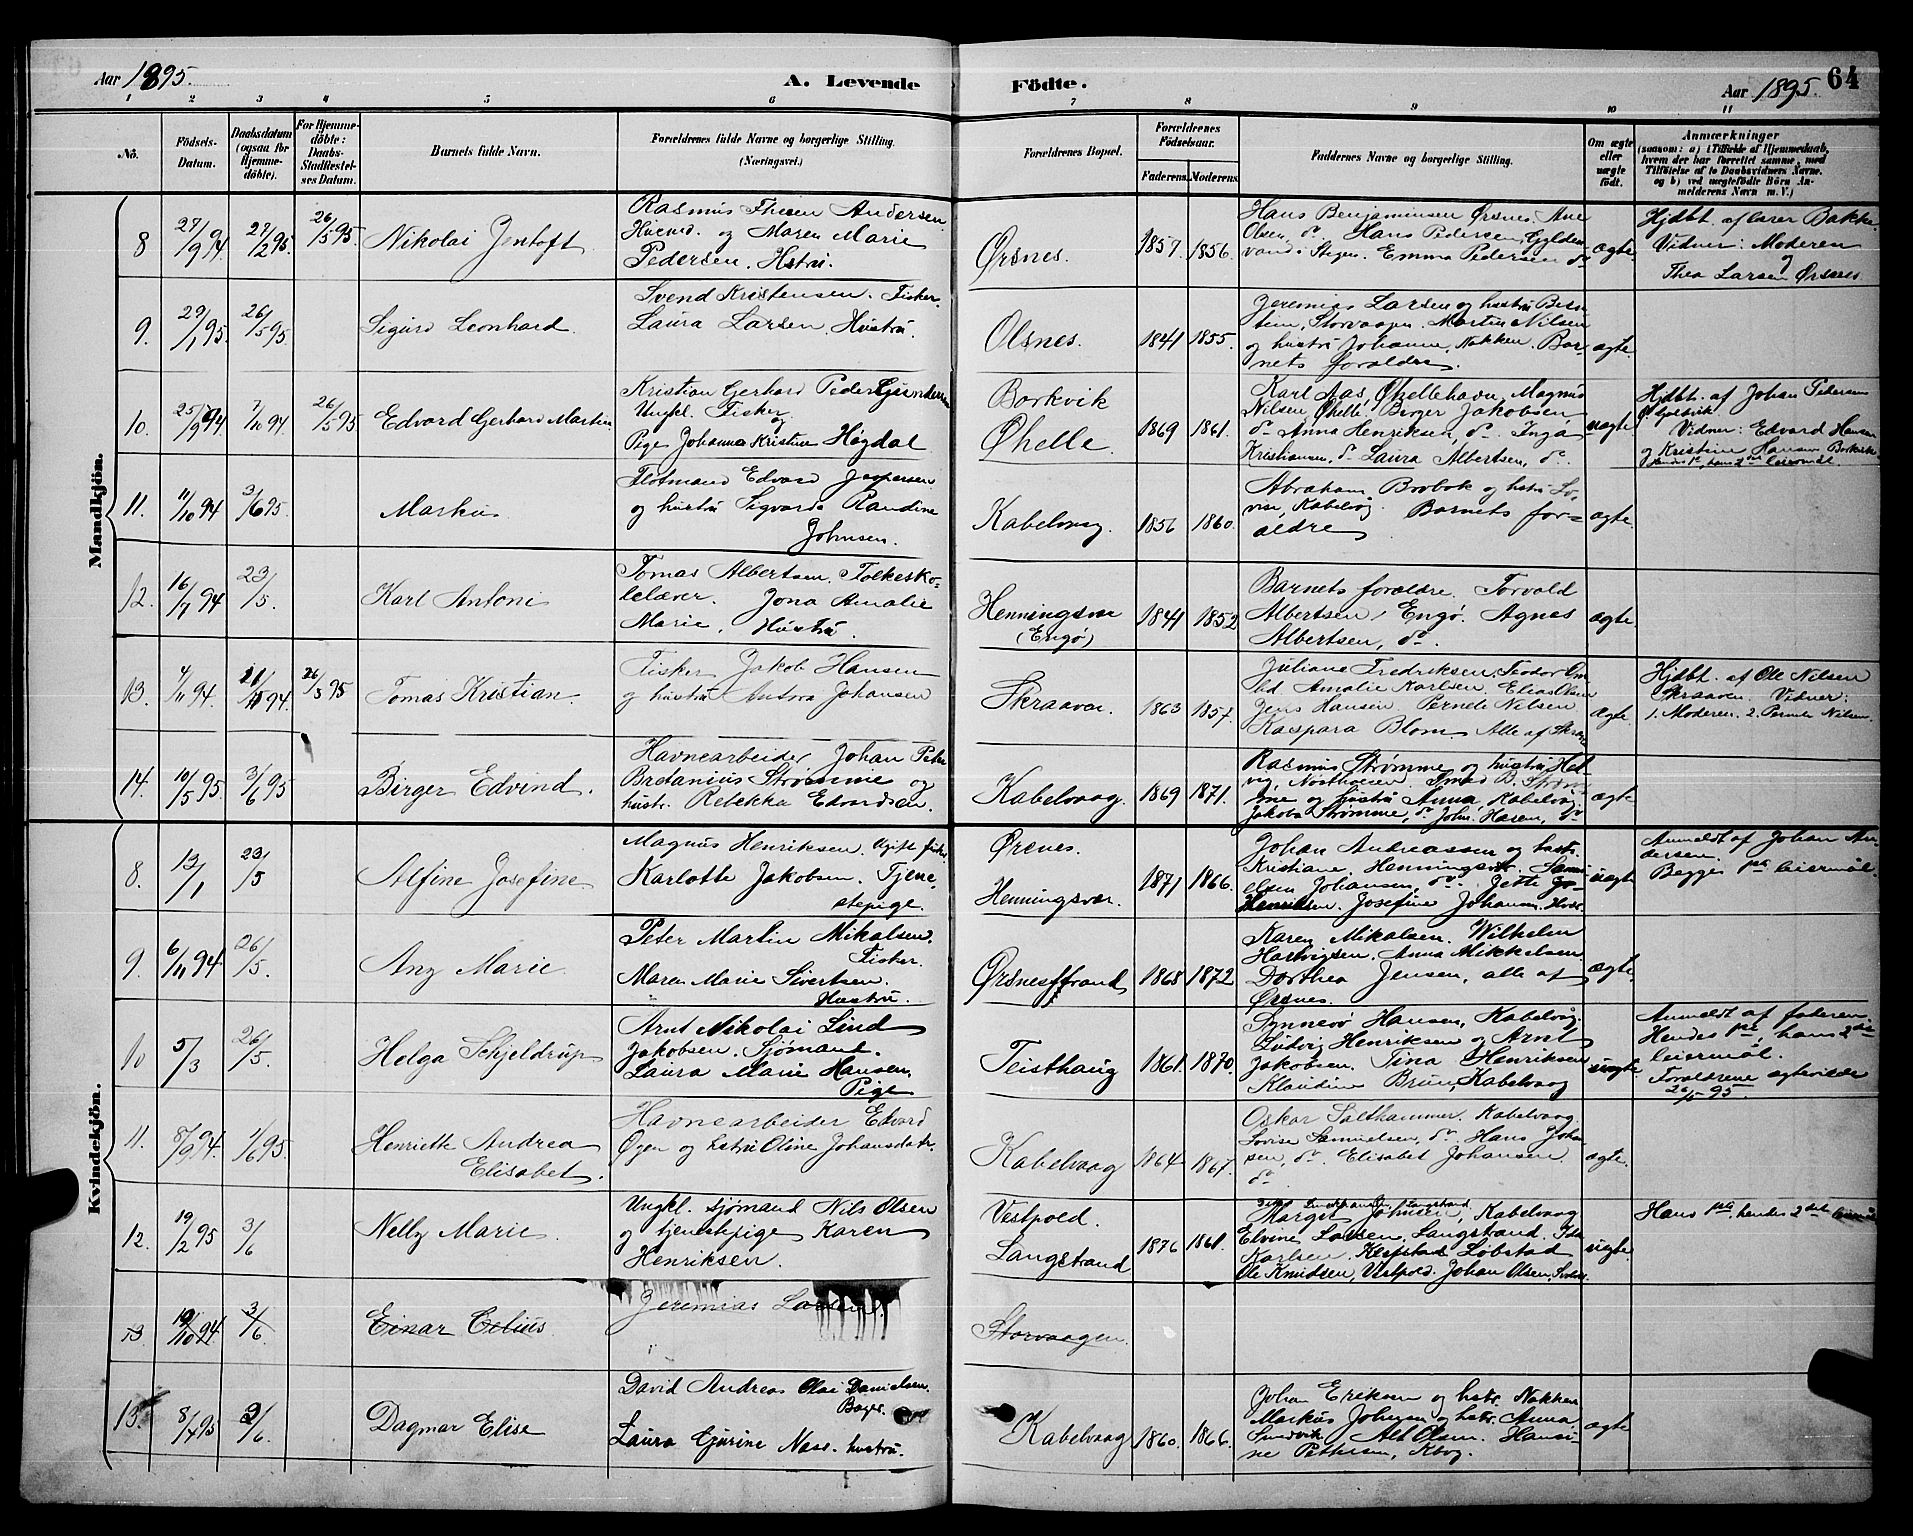 Aar 1895.
A. Levende
Födte.
Aar 1895.
64
1 2 3 4 5 6 7 8 9 10 11
No.
Födsels-Datum.
Daabsdatum (ogsaa for Hjemmedöbte).
For Hjemmedöbte: Daabs-Stadfæstelses Datum.
Barnets fulde Navn.
Forældrenes fulde Navne og borgerlige Stilling. (Næringsvei.)
Forældrenes Bopæl.
Forældrenes Födselsaar.
Faderens. Moderens.
Faddernes Navne og borgerlige Stilling.
Om ægte eller uægte födt.
Anmærkninger
(saasom: a) i Tilfælde af Hjemmedaab, hvem der har forrettet samme, med Tilföielse af to Daabsvidners Navne, og b) ved uægtefödte Börn Anmelderens Navn m. V.)
Mandkjön.
8 27/9 94 27/2 95 26/5 95 Nikolai Jentoft
Rasmus Andersen
og Maren Marie
Pedersen. Hstru.
Ørsnes. 1857. 1856.
Hans Benjaminsen Ørsnes. Ane
Olsen, do. Hans Pedersen, Gylden-
vand i Stegen. Emma Pedersen do
ægte
Hjdbt. af lærer Bakke.
Vidner: Moderen
og
Thea Larsen Ørsnes.
9. 29/1 95. 26/5 95. Sigurd Leonhard.
Svend Kristensen. Fisker.
Laura Larsen, Hustru
Olsnes. 1841 1855.
Jeremias Larsen og hustru
Storvaagen. Martin Nilsen
og hustru Johanne, Nøkken. Bar-
nets forældre.
ægte.
10. 25/9 94 7/10 94 26/5 95 Edvard Gerhard Martin
Kristian Gerhard Peder
Ungkl. Fisker
og
Pige Johanna Kristine Høgdal
Borkvik
Øhelle. 1869 1861.
Karl Aas, Øhellehavn, Magnus
Nilsen, Øhelle. Birger Jakobsen
do Anna Henriksen, do. Inga
Kristiansen, do Laura Albertsen, do.
uægte
Hjdbt. af Johan Pedersen
Vidner: Edvard Hansen
og Kristine Hansen Borkvik
11. 11/10 94 3/6 95. Markus
Flotmand Edvard Jespersen
og hustru Sigvarda Randine
Johnsen.
Kabelvaag. 1856 1860.
Abraham og hstr Lo-
vise, Kabelvåg. Barnets for-
ældre
ægte
12. 16/7 94 23/5. Karl Antoni
Tomas Albertsen. Folkesko-
lelærer. Jona Amalie
Marie, Hustru.
Henningsvær
(Engø) 1841 1852
Barnets forældre. Torvald
Albertsen, Engø. Agnes
Albertsen, do
ægte.
13. 4/11 94. 11 94 26/5 95 Tomas Kristian.
Fisker Jakob Hansen
og hustru Antora Johansen
Skraaven. 1863 1857.
Juliane Fredriksen, Teodor
Amalie Karlsen. Elias Olsen
Jens Hansen Pernele Nilsen
Kaspara Blom. Alle af
ægte.
Hjdbt. af Ole Nilsen
Skraaven. Vidner:
1. Moderen. 2. Pernele Nilsen.
14. 10/5 95. 3/6 95 Birger Edvind.
Havnearbeider Johan Peter
Bretanius Strømme og
hustr. Rebekka Edvardsen.
Kabelvaag. 1869 1871.
Rasmus Strømme og hustru Hel-
vig,
og hustru Anna, Kabelvåg.
Jakob Strømme, do John Hasen, do
ægte
Kvindekjön.
8. 13/1 23/5 Alfine Josefine
Magnus Henriksen. Ugift fisker
Karlotte Jakobsen. Tjene-
stepige.
Ørsnes.
Henningsvær. 1871 1866.
Johan Andreassen og hustr.
Kristiane, Henningsvær.
Johansen, do. Jette
Henriksen. Josefine Johansen.
uægte
Anmeldt af Johan An-
dersen.
Begges 1ste leiermål.
9. 6/11 94 26/5. Any Marie.
Peter Martin Mikalsen.
Fisker.
Maren Marie Sivertsen.
Hustru.
Ørsnesstrand 1868 1872
Karen Mikalsen. Wilhelm
Hartvigsen. Anna Mikkelsen
Dorthea Jensen, alle af
Ørsnes.
ægte.
10 5/3 26/5. Helga Schjeldrup
Arnt Nikolai Lind
Jakobsen. Sjømand.
Laura Marie Hansen.
Pige
Teisthaug 1861. 1870.
Synnevø Hansen, Kabelvåg.
Ludvig Henriksen og Arnt
Jakobsen. Tina Henriksen
Klaudine Brun, Kabelvaag
uægte
Anmeldt af faderen.
Hendes 1ste, hans 2det
leiermål.
Forældrene ægteviede
26/5 95.
11. 8/9 94. 1/6 95. Henriette Andrea
Elisabet.
Havnearbeider Edvard
Øyen og hstru Oline Johansdatr.
Kabelvaag 1864 1867.
Oskar Salthammer. Kabelvaag
Lovise Samuelsen, do. Hans Johan-
sen, do. Elisabet Johansen.
do.
ægte.
12. 19/2 95 3/6 Nelly Marie
Ungkl. sjømand Nils Olsen
og tjenestpige Karen
Henriksen.
Vestpold.
Langstrand 1876 1861.
Margit Johnsen, Kabelvaag
Elvine Larsen, Langstrand. Ida
Karlsen, Løbstad
Ole Knudsen, Vestpold. Johan Olsen,
uægte.
Hans 1ste hendes 2det leiermål
13 19/10 94 3/6 Einar Celius.
Jeremias Larsen.
Storvaagen.
13. 8/4 95 2/6 Dagmar Elise
David Andreas Olai Danielsen.
Bager.
Laura Gjurine Næss. hustru.
Kabelvaag 1860. 1866.
Johan Eriksen og hstr. Nøkken
Markus Johnsen og hstr. Anna,
Alt Olsen. Hansi-
ne Pettersen, Kbvg.
ægte